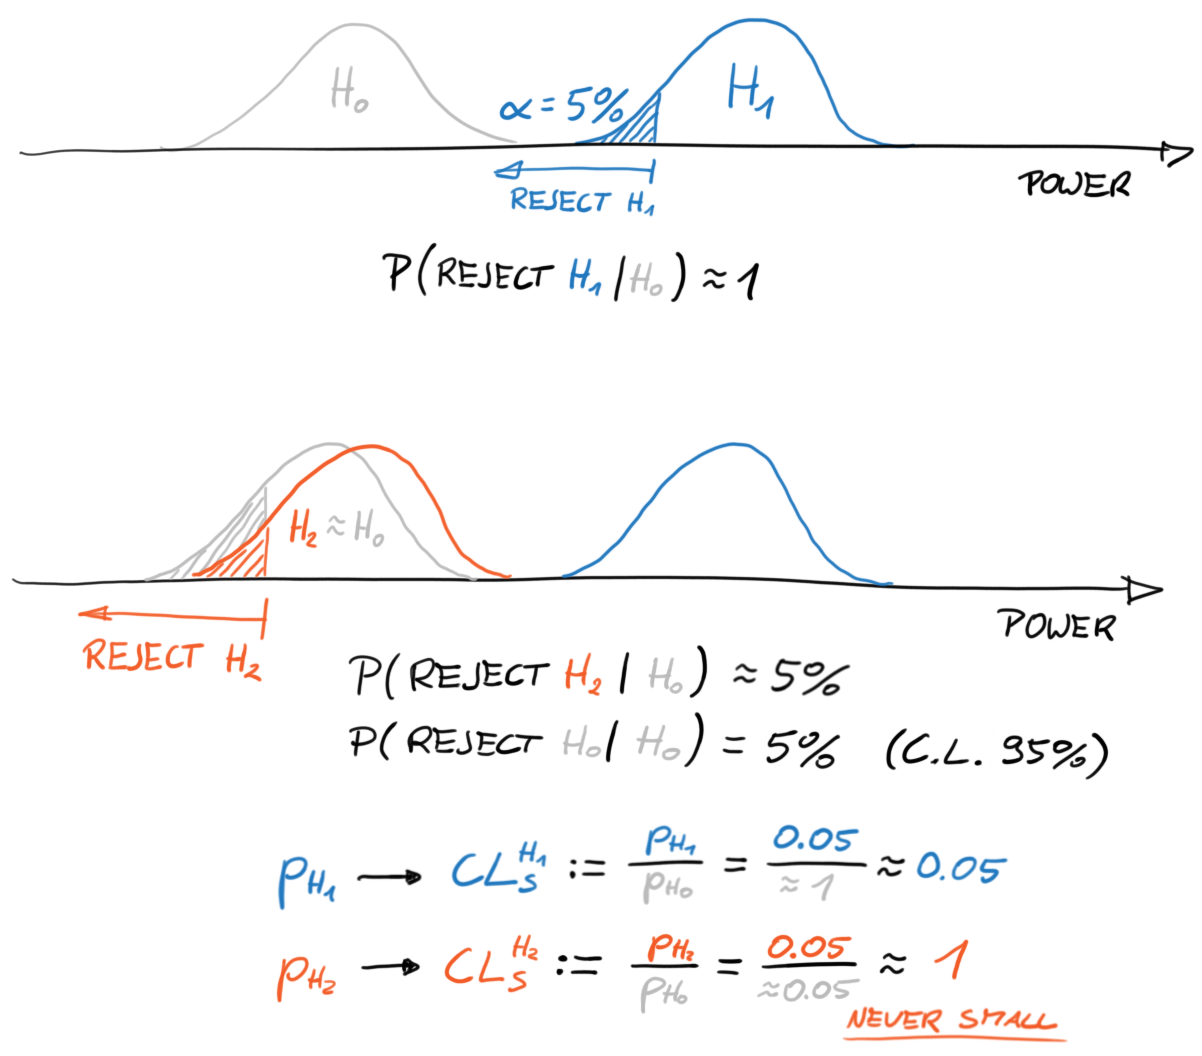 H₀
α = 5%
H₁
REJECT H₁
POWER
P(REJECT H₁ | H₀) ≈ 1
H₂ ≈ H₀
REJECT H₂
POWER
P(REJECT H₂ | H₀) ≈ 5%
P(REJECT H₀ | H₀) = 5% (C.L. 95%)
p_H₁ → CL_S^H₁ := p_H₁ / p_H₀ = 0.05 / ≈ 1 ≈ 0.05
p_H₂ → CL_S^H₂ := p_H₂ / p_H₀ = 0.05 / ≈0.05 ≈ 1
NEVER SMALL